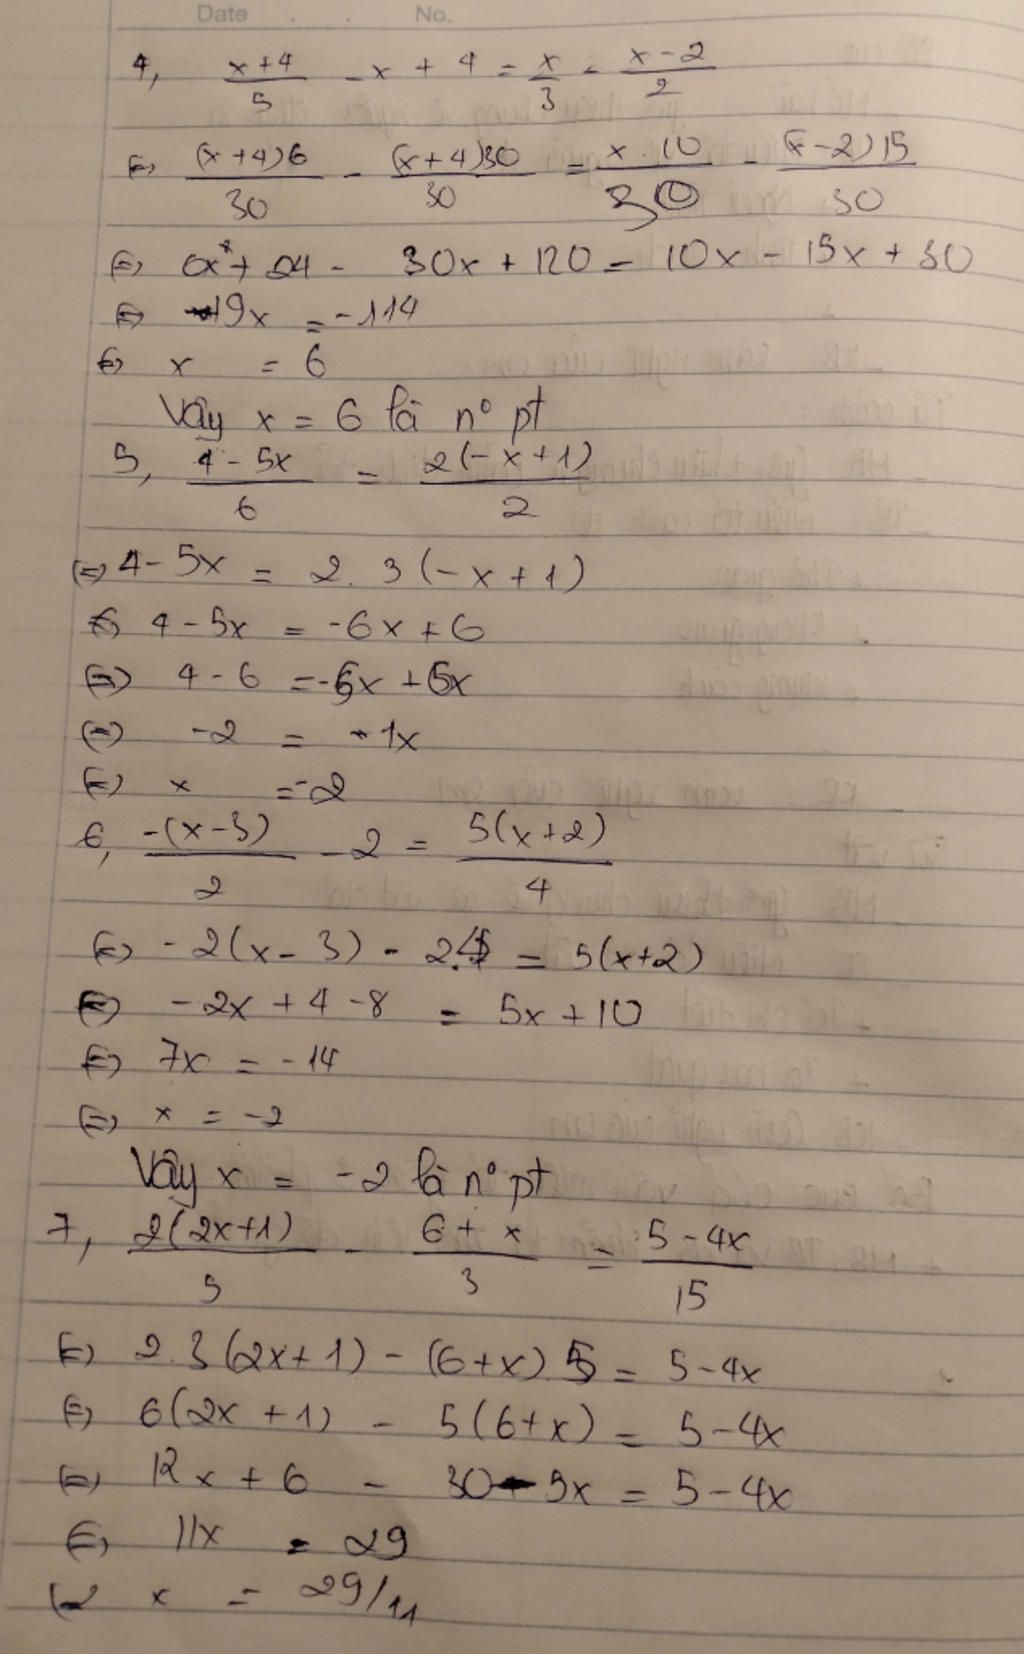 Date . . No.
4, (x+4)/5 - x + 4 = x/3 - (x-2)/2
(=) (x+4)6/30 - (x+4)30/30 = x.10/30 - (x-2)15/30
(=) 6x + 24 - 30x + 120 = 10x - 15x + 30
(=) -19x = -114
(=) x = 6
Vậy x = 6 là n° pt
5, (4-5x)/6 = 2(-x+1)/2
(=) 4-5x = 2.3(-x+1)
(=) 4-5x = -6x+6
(=) 4-6 = -6x+5x
(=) -2 = -1x
(=) x = -2
6, -(x-3)/2 - 2 = 5(x+2)/4
(=) -2(x-3) - 2.4 = 5(x+2)
(=) -2x+4-8 = 5x+10
(=) 7x = -14
(=) x = -2
Vậy x = -2 là n° pt
7, 2(2x+1)/5 - (6+x)/3 = (5-4x)/15
(=) 2.3(2x+1) - (6+x).5 = 5-4x
(=) 6(2x+1) - 5(6+x) = 5-4x
(=) 12x+6 - 30-5x = 5-4x
(=) 11x = 29
(=) x = 29/11